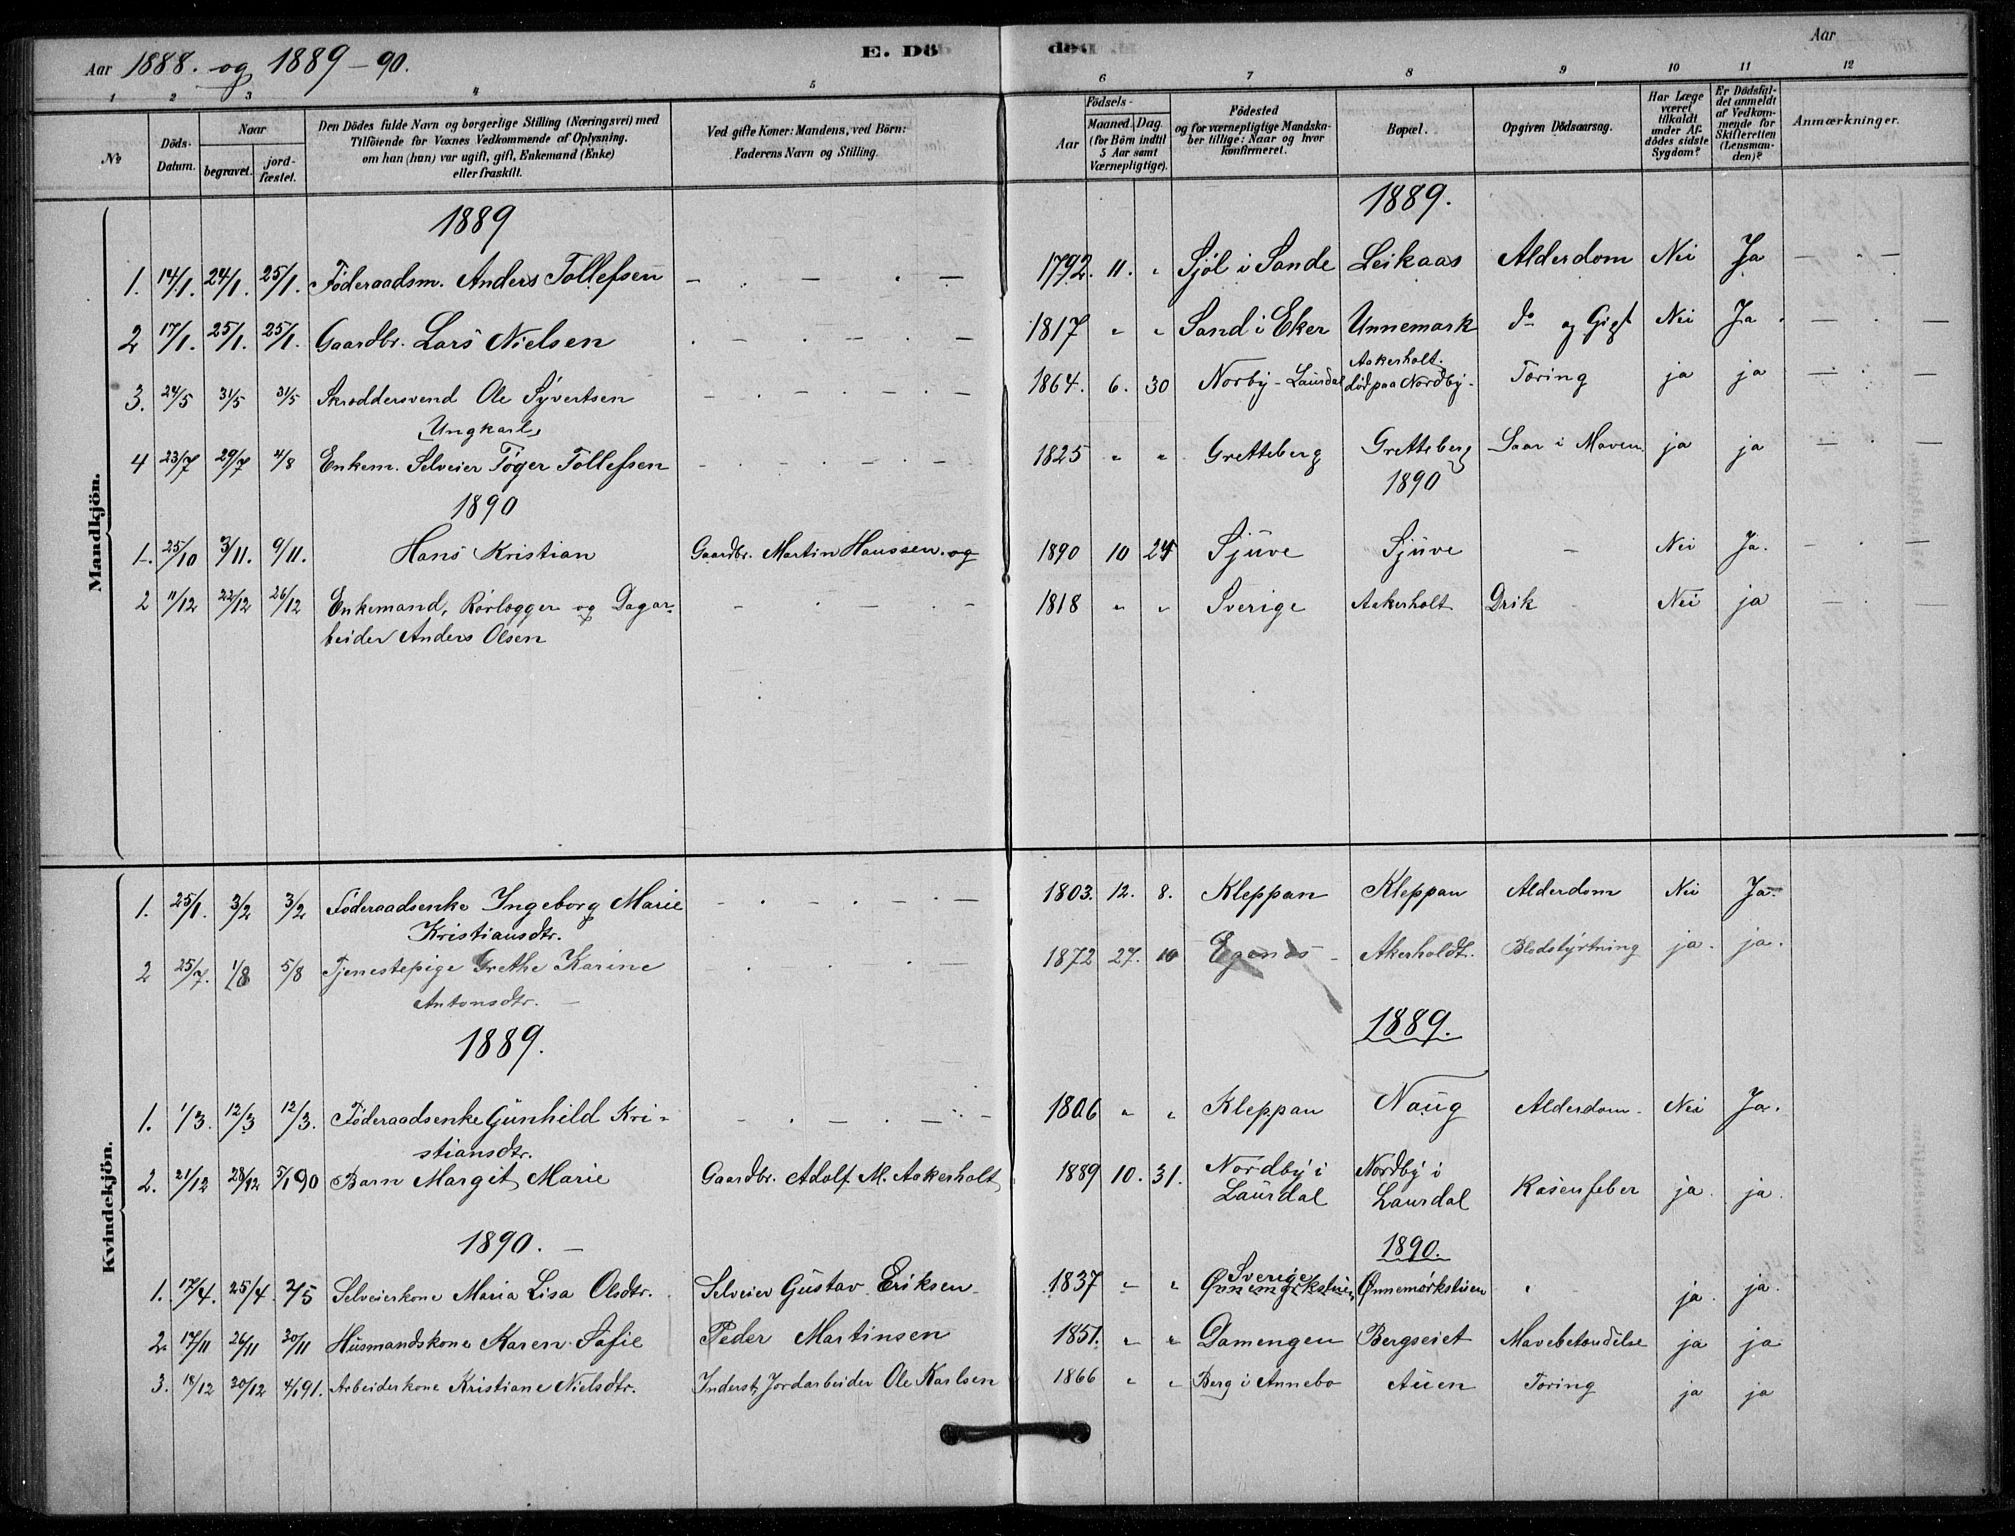 Aar 1888. og 1889-90. E. Döde Aar
1 2 3 4 5 6 7 8 9 10 11 12
No Döds-Datum. Naar begravet. jord-fæstet. Den Dödes fulde Navn og borgerlige Stilling (Næringsvei) med Tilföiende for Voxnes Vedkommende af Oplysning, om han (hun) var ugift, gift, Enkemand (Enke) eller fraskilt. Ved gifte Koner: Mandens, ved Börn: Faderens Navn og Stilling. Födsels- Aar Maaned. Dag (for Börn indtil 5 Aar samt Værnepligtige). Födested og for værnepligtige Mandskaber tillige: Naar og hvor konfirmeret. Bopæl. Opgiven Dödsaarsag. Har Læge været tilkaldt under Afdödes sidste Sygdom? Er Dödsfaldet anmeldt af Vedkommende for Skifteretten (Lensmanden)? Anmærkninger.
Mandkjön.
1889 1889.
1. 14/1. 24/1. 25/1. Föderaadsm. Anders Tollefsen - - - 1792. 11. " Sjöl i Sande Leikaas Alderdom Nei Ja
2 17/1. 25/1. 25/1. Gaardbr. Lars Nielsen - - - 1817 " " Sand i Eker Unnemark do og Gigt Nei Ja
3. 24/5 31/5 31/5 Skræddersvend Ole Syvertsen - - - 1864. 6. 30 Norby - Laurdal Aakerholt. död paa Nordby - Tæring ja ja
(Ungkarl)
4 23/7 29/7 4/8 Enkem. Selveier Töger Tollefsen - - - 1825 " " Gretteberg Gretteberg Saar i Maven ja ja
1890 1890
1. 25/10 3/11. 9/11. Hans Kristian Gaardbr. Martin Hanssen og 1890 10 24 Sjuve Sjuve - Nei Ja.
2 11/12 22/12 26/12 Enkemand, Rörlægger og Dagar- - - - 1818 " " Sverige Aakerholt Drik Nei ja
beider Anders Olsen
Kvindekjön.
1. 25/1. 3/2 3/2 Föderaadsenke Ingeborg Marie - - - 1803. 12. 8. Kleppan Kleppan Alderdom Nei Ja.
Kristiansdtr.
2 25/7. 1/8 5/8 Tjenestepige Grethe Karine - - - 1872 27. 10 Egenæs - Akerholdt. Blodstyrtning ja. ja.
Antonsdtr. -
1889. 1889.
1. 1/3. 12/3 12/3. Föderaadsenke Gunhild Kri- - - - 1806 " " Kleppan Naug Alderdom. Nei Ja.
stiansdtr.
2. 21/12 28/12 5/190 Barn Margit Marie Gaardbr. Adolf M. Aakerholt 1889 10. 31. Nordby i Laurdal Nordby i Laurdal Rosenfeber ja. ja.
1890. - 1890.
1. 17/4. 25/4 2/5 Selveierkone Maria Lisa Olsdtr. Selveier Gustav Eriksen 1837 " " Sverige Önnemörkstuen Önnemörkstuen " ja. ja.
2. 17/11 26/11 30/11 Husmandskone Karen Sofie Peder Martinsen 1851. " " Damengen Bergseiet Mavebetændelse ja ja
3. 18/12 30/12 4/191. Arbeiderkone Kristiane Nielsdtr. Inderst, Jordarbeider Ole Karlsen 1866 " " Berg i Annebo Auen Tæring ja ja